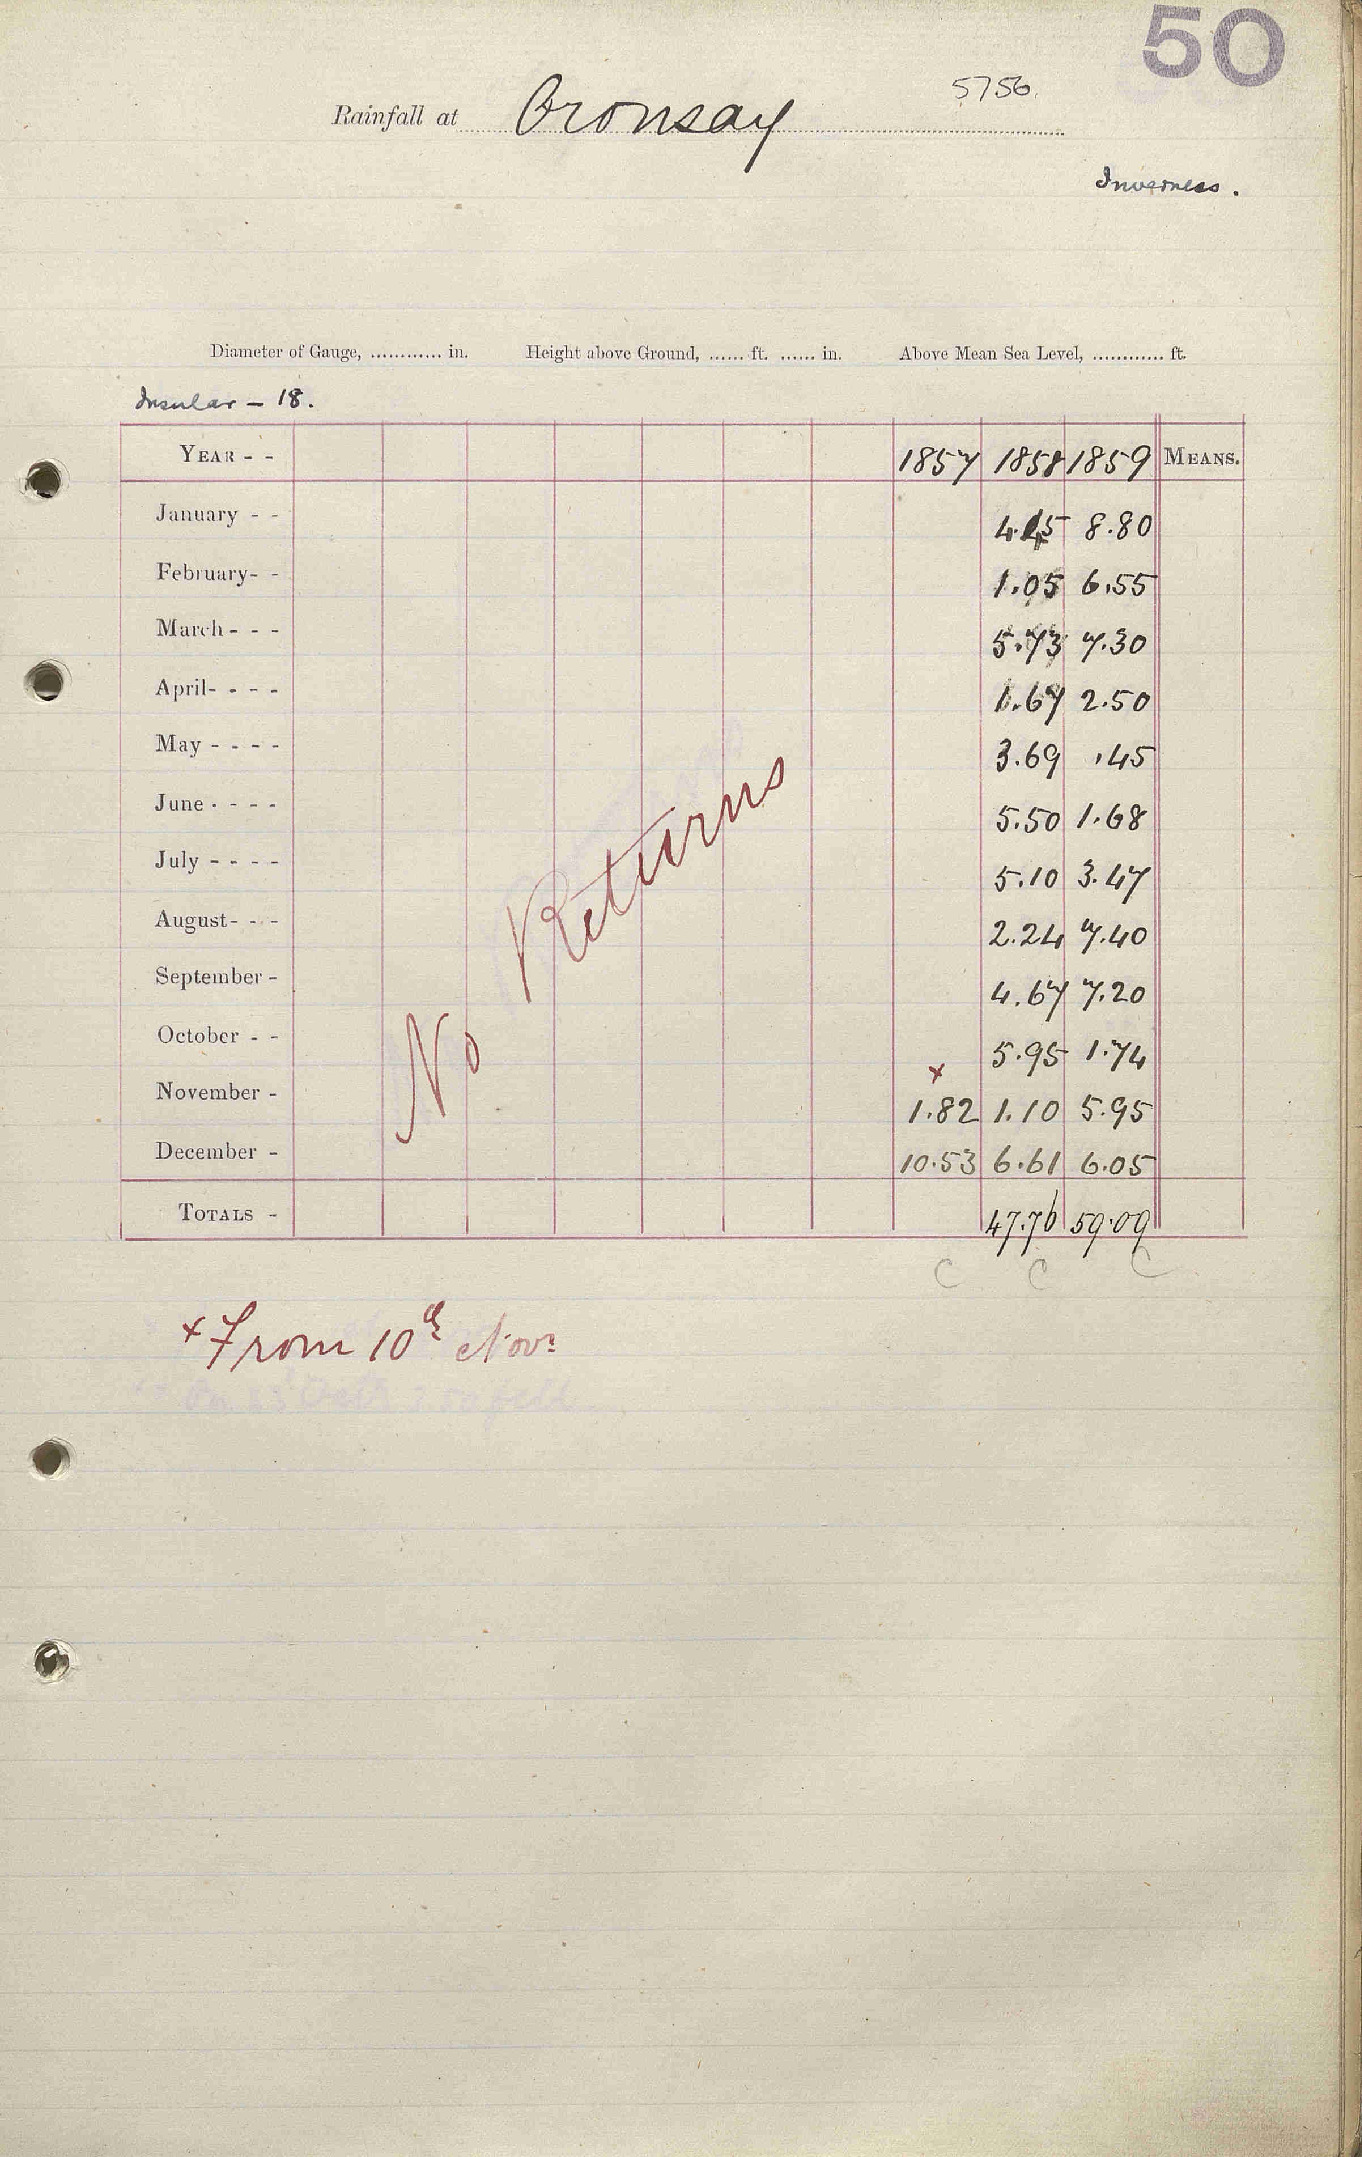 50
5756.
Rainfall at Oronsay
Inverness.
Diameter of Gauge, ............ in. Height above Ground, ...... ft. ...... in. Above Mean Sea Level, ............ ft.
Insular - 18.
YEAR - - 1857 1858 1859 MEANS.
January - - 4.45 8.80
February- - 1.05 6.55
March - - - 5.73 7.30
April- - - - 1.67 2.50
May - - - - 3.69 .45
June - - - - 5.50 1.68
July - - - - 5.10 3.47
August- - - 2.24 7.40
September - 4.67 7.20
October - - 5.95 1.74
November - x 1.82 1.10 5.95
December - 10.53 6.61 6.05
TOTALS - 47.76 59.09
C C C
No Returns
x From 10th Novr